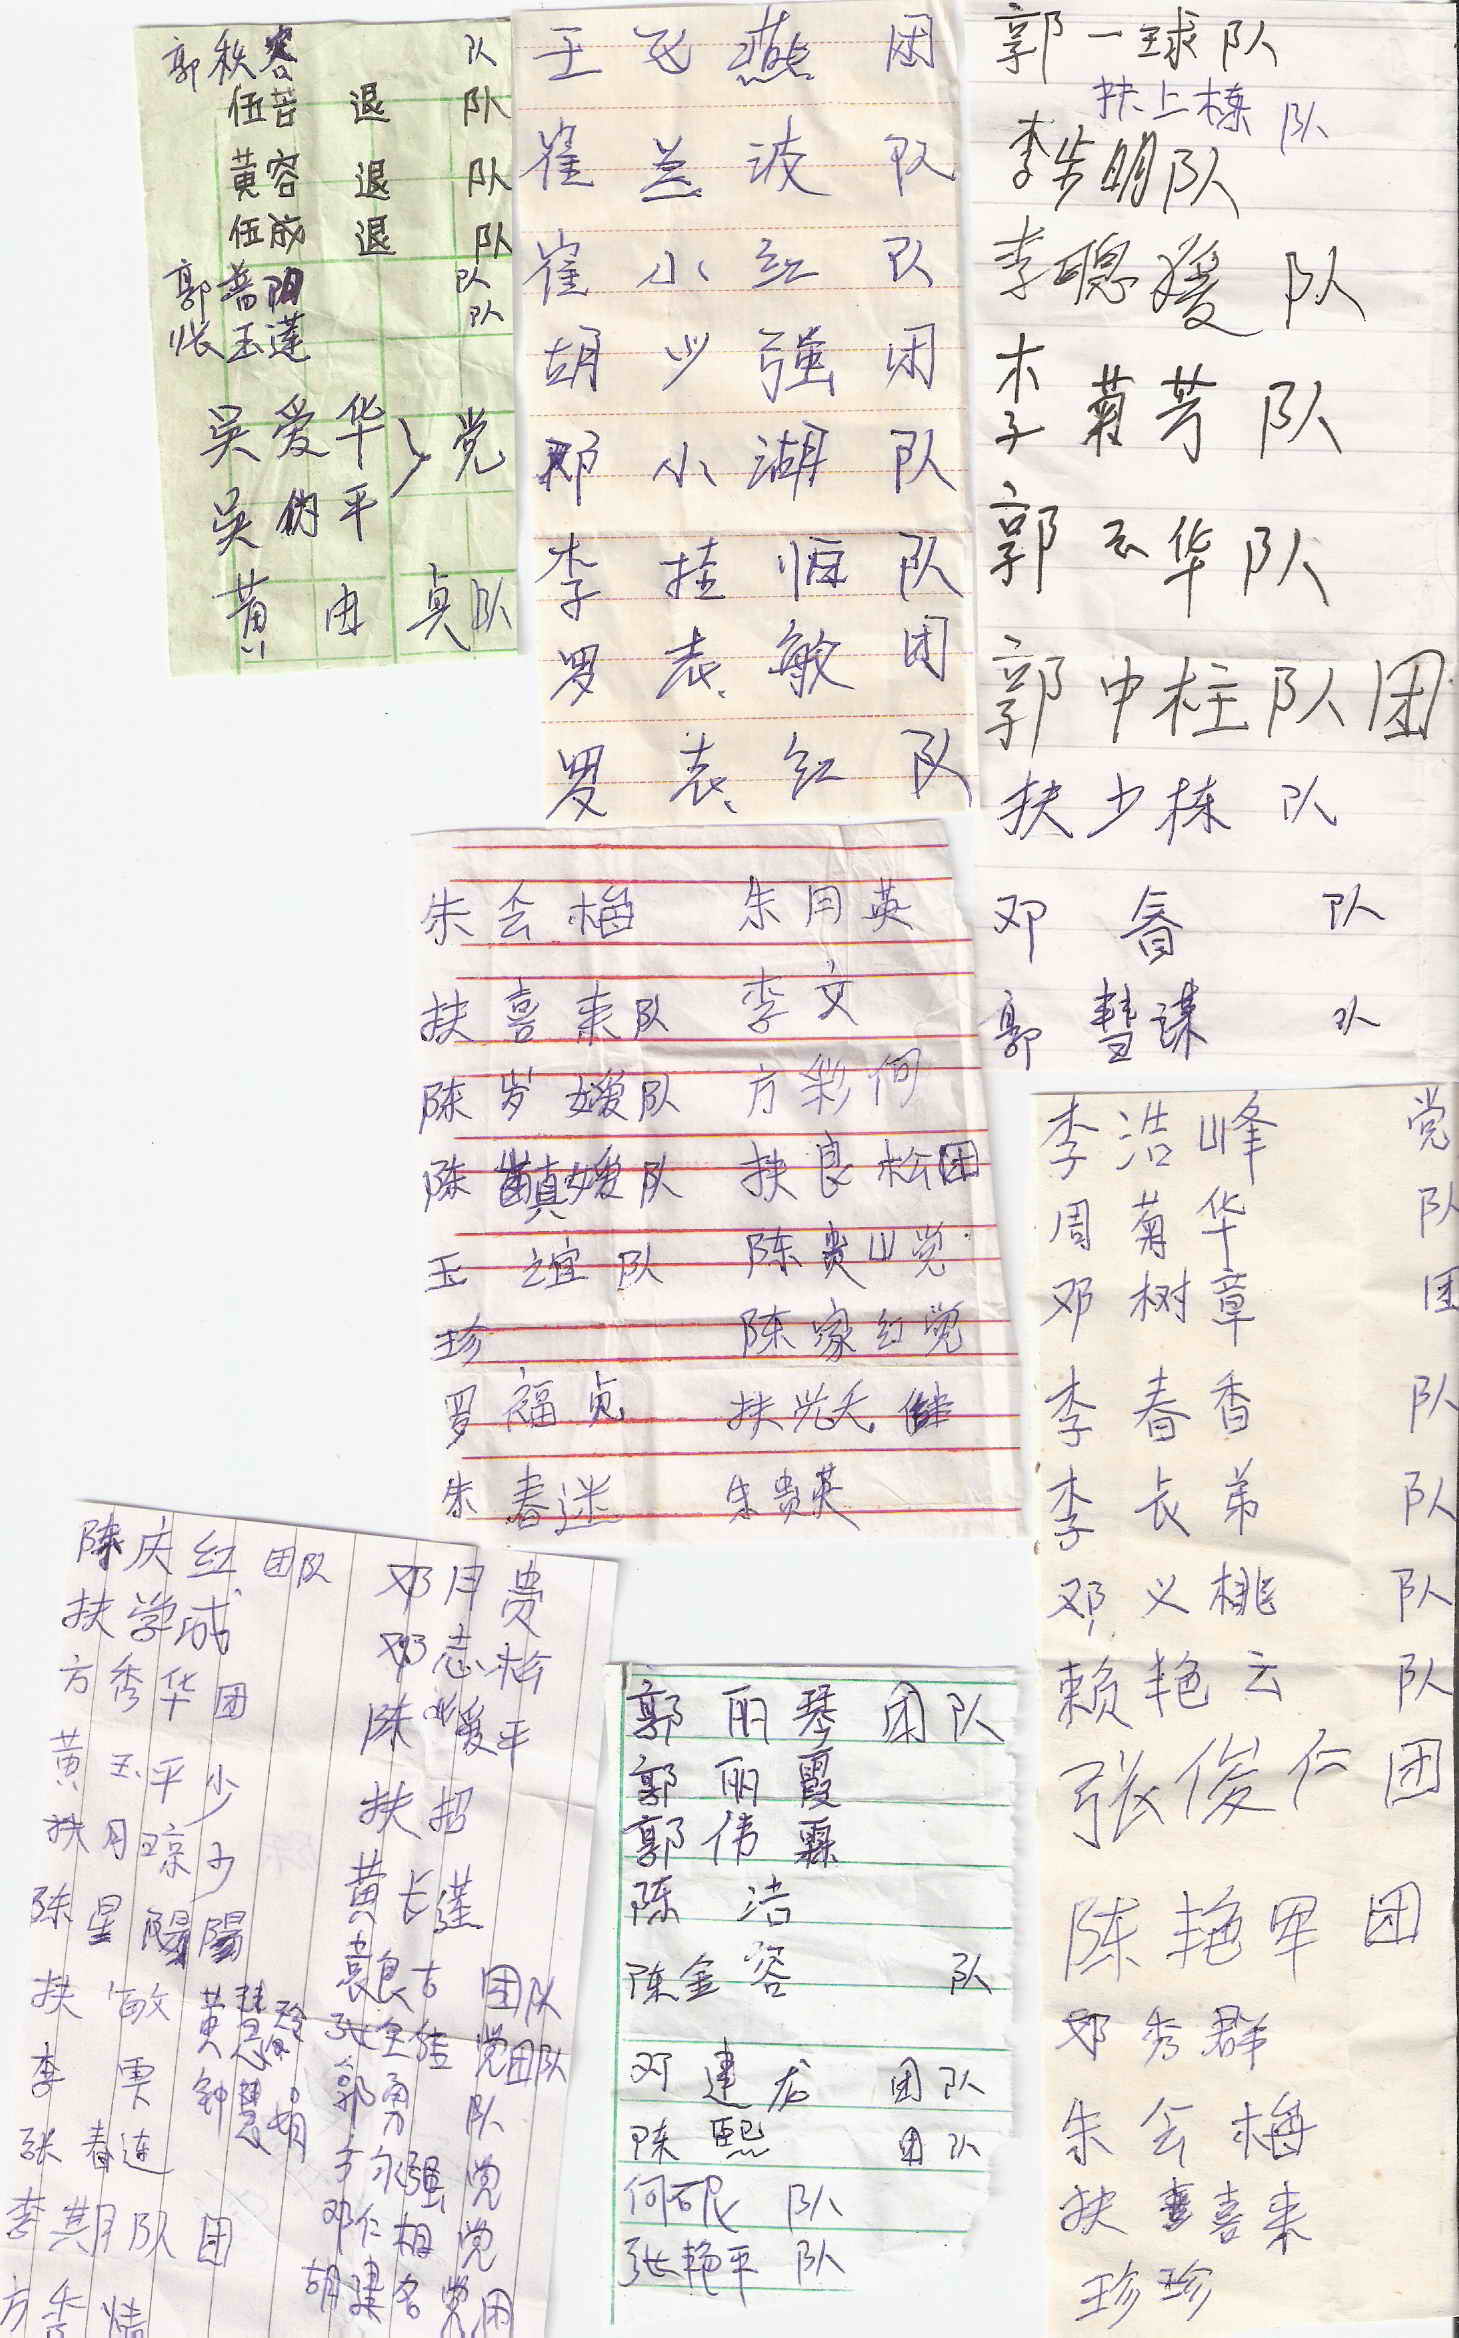 郭秩容 队
伍苦 退 队
黄容 退 队
伍成 退 队
郭 队
张玉莲 队
吴爱华 党
吴伪平
黄由贞队
王飞燕团
崔兰波队
崔小红队
胡少强团
邓小湖队
李桂恒队
罗表敏团
罗表红队
郭一球队
扶上栋队
李步明队
李聪媛队
李菊芳队
郭云华队
郭中柱队团
扶少栋队
邓春队
郭慧谋队
朱会梅 朱月英
扶喜来队 李文
陈岁媛队 方彩何
陈真媛队 扶良松团
玉谊队 陈贵山党
珍 陈家红党
罗福贞 扶光天
朱春迷 朱贵英
李浩峰 党
周菊华 队
邓树章 团
李春香 队
李长弟 队
邓义桃 队
赖艳云 队
张俊仁团
陈艳军团
邓秀群
朱会梅
扶喜来
珍珍
陈庆红团队
扶学成
方秀华团
黄玉平少
扶月琼少
陈星陽
扶敏
李
张春连
李其月队团
方秀情
黄慧玲
钟慧娟
邓月贵
邓志松
陈媛平
扶招
黄长莲
袁良古 团队
张全佳 党团队
郭勇 队
方永强 党
邓仁相 党
胡梁名党团
郭丽琴团队
郭丽霞
郭伟霖
陈洁
陈金容 队
邓建龙 团队
陈熙 团队
何砚队
张艳平队